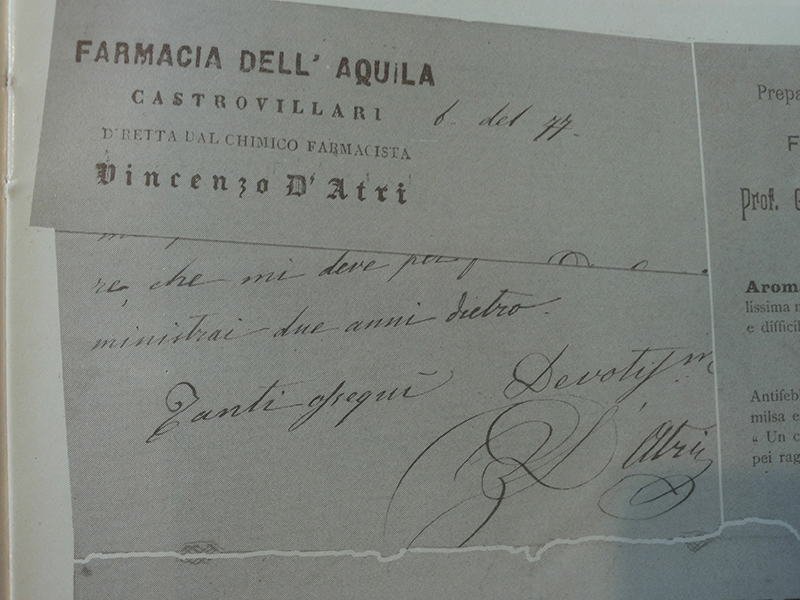 FARMACIA DELL' AQUILA
CASTROVILLARI
6. del 77.
DIRETTA DAL CHIMICO FARMACISTA
Vincenzo D'Atri
re, che mi deve per
ministrai due anni dietro.
Tanti ossequi
Devotissm
D'Atri
Prepa
F
Prof. G
Aroma
lissima
e diffici
Antifeb
milsa e
« Un c
pei rag